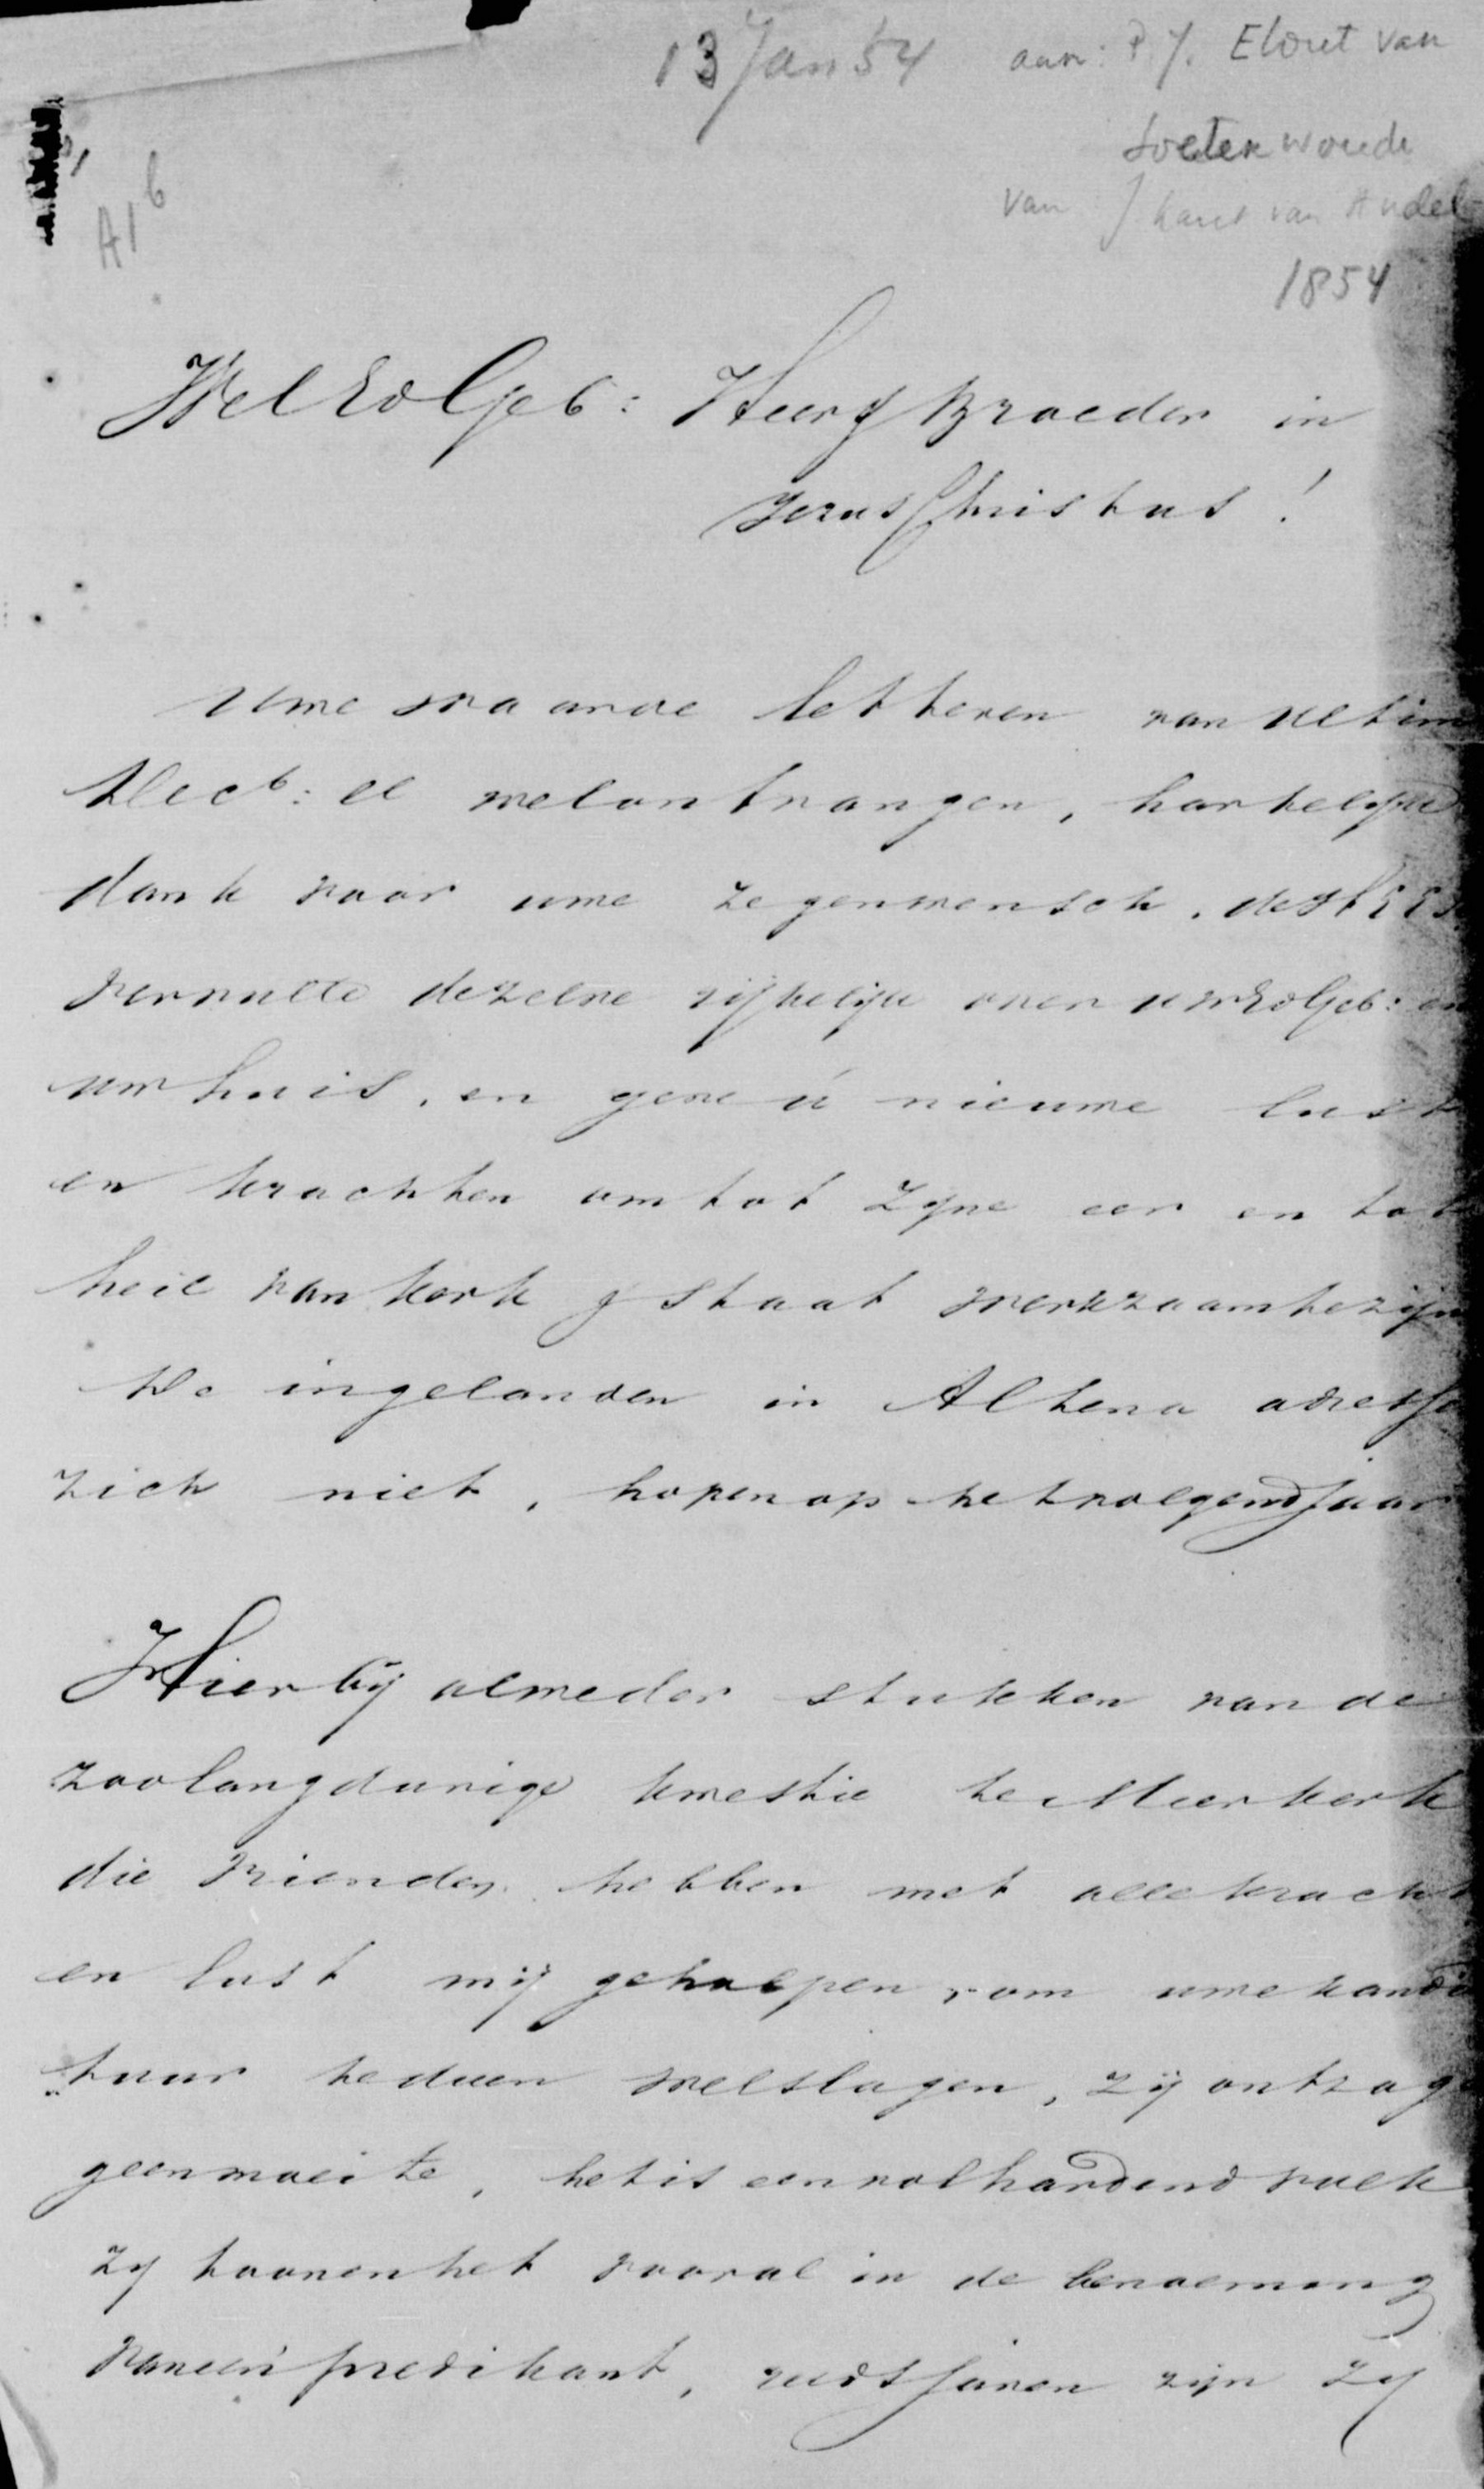 13 Jan 54 aan: P.J. Elout van
Soeterwoude
van J. van Andel
1854
A1 6
WelEdlGeb: Heer & Broeder in
Jezus Christus!
uwe waarde letteren van ultimo
Decb: el wel ontvangen, hartelyke
dank voor uwe zegenwensch. de HEE
vervulle dezelve rijkelijk over uwEdlGeb: en
uw huis, en geve ú nieuwe lust
en krachten om tot zyne eer en tot
heil van kerk & staat werkzaam te zijn
De ingelanden in Altena adresse
zich niet, hopen op het volgend jaar
Hierbij alweder stukken van de
zoolangdurige kwestie te Meerkerk
die vrienden hebben met alle kracht
en lust mij geholpen, om uwe kandi
tuur te doen welslagen, zij ontzag
geen moeite, het is een volhardend volk
zy toonen het vooral in de benoeming
van een predikant, reeds jaren zijn zy